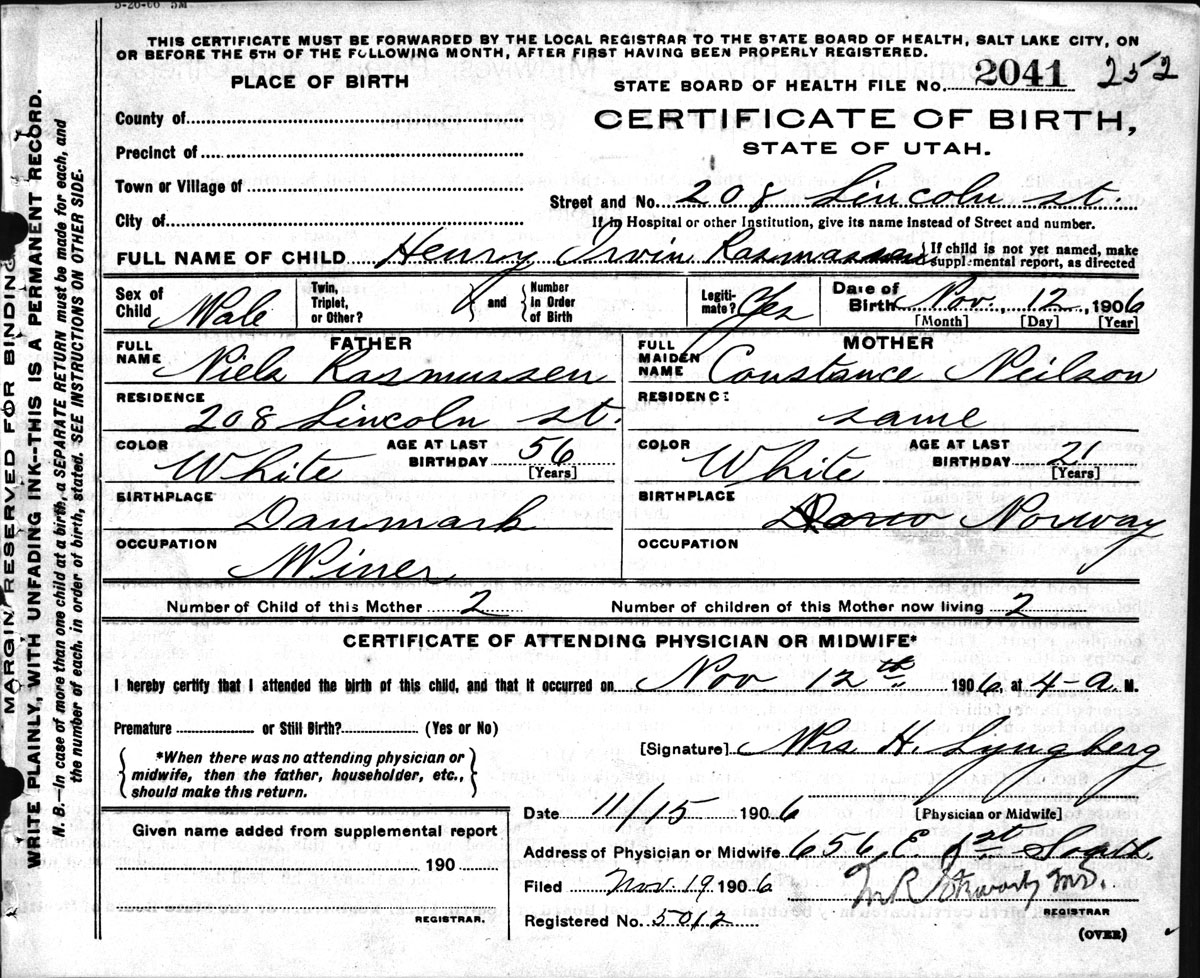 THIS CERTIFICATE MUST BE FORWARDED BY THE LOCAL REGISTRAR TO THE STATE BOARD OF HEALTH, SALT LAKE CITY, ON
OR BEFORE THE 5TH OF THE FOLLOWING MONTH, AFTER FIRST HAVING BEEN PROPERLY REGISTERED.
PLACE OF BIRTH
STATE BOARD OF HEALTH FILE NO. 2041 252
County of
CERTIFICATE OF BIRTH,
Precinct of
STATE OF UTAH.
Town or Village of
Street and No. 208 Lincoln st.
City of
If in Hospital or other Institution, give its name instead of Street and number.
FULL NAME OF CHILD Henry Irvin Rasmussen { If child is not yet named, make
supplemental report, as directed
Sex of Child Male
Twin, Triplet, or Other? } and { Number in Order of Birth
Legitimate? Yes
Date of Birth Nov. 12, 1906
[Month] [Day] [Year]
FATHER
FULL NAME Niels Rasmussen
RESIDENCE 208 Lincoln st.
COLOR White
AGE AT LAST BIRTHDAY 56
[Years]
BIRTHPLACE Danmark
OCCUPATION Miner
MOTHER
FULL MAIDEN NAME Constance Neilson
RESIDENCE same
COLOR White
AGE AT LAST BIRTHDAY 21
[Years]
BIRTHPLACE Norway
OCCUPATION
Number of Child of this Mother 2
Number of children of this Mother now living 2
CERTIFICATE OF ATTENDING PHYSICIAN OR MIDWIFE*
I hereby certify that I attended the birth of this child, and that it occurred on Nov. 12th 1906, at 4-a. M.
Premature or Still Birth? (Yes or No)
*When there was no attending physician or
midwife, then the father, householder, etc.,
should make this return.
[Signature] Mrs H. Lyngberg
[Physician or Midwife]
Date 11/15 1906
Given name added from supplemental report
190
REGISTRAR.
Address of Physician or Midwife 656 E. 1st South
Filed Nov. 19, 1906
M.D.
REGISTRAR
Registered No. 5012
(OVER)
MARGIN RESERVED FOR BINDING
WRITE PLAINLY, WITH UNFADING INK--THIS IS A PERMANENT RECORD.
N. B.—In case of more than one child at a birth, a SEPARATE RETURN must be made for each, and
the number of each, in order of birth, stated. SEE INSTRUCTIONS ON OTHER SIDE.